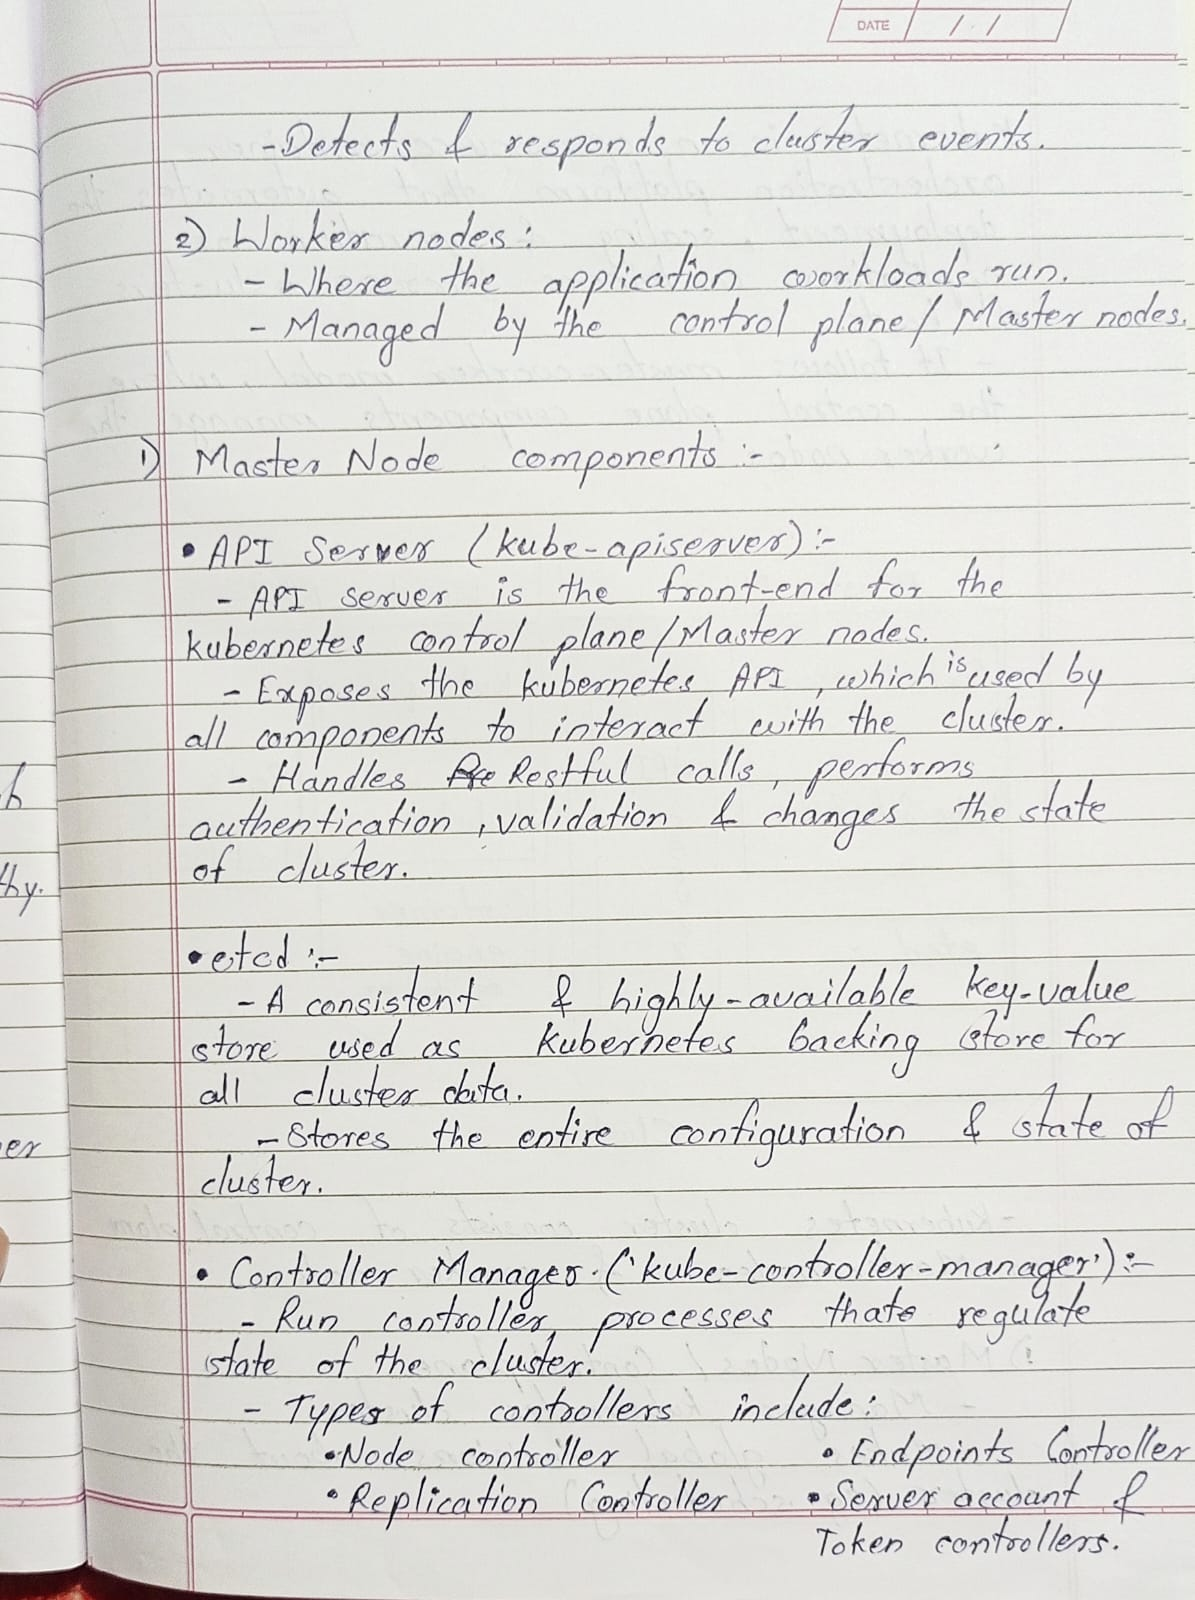 DATE / /
-Detects & responds to cluster events.
2) Worker nodes:
- Where the application workloads run.
- Managed by the control plane/Master nodes.
1) Master Node components :-
• API Server (kube-apiserver):-
- API server is the front-end for the
kubernetes control plane/Master nodes.
- Exposes the kubernetes API, which is used by
all components to interact with the cluster.
- Handles Restful calls, performs
authentication, validation & changes the state
of cluster.
• etcd :-
- A consistent & highly-available key-value
store used as Kubernetes backing store for
all cluster data.
- Stores the entire configuration & state of
cluster.
• Controller Manager. ('kube-controller-manager'):-
- Run controller processes thats regulate
state of the cluster.
- Types of controllers include:
• Node controller • Endpoints Controller
• Replication Controller • Server account &
Token controllers.